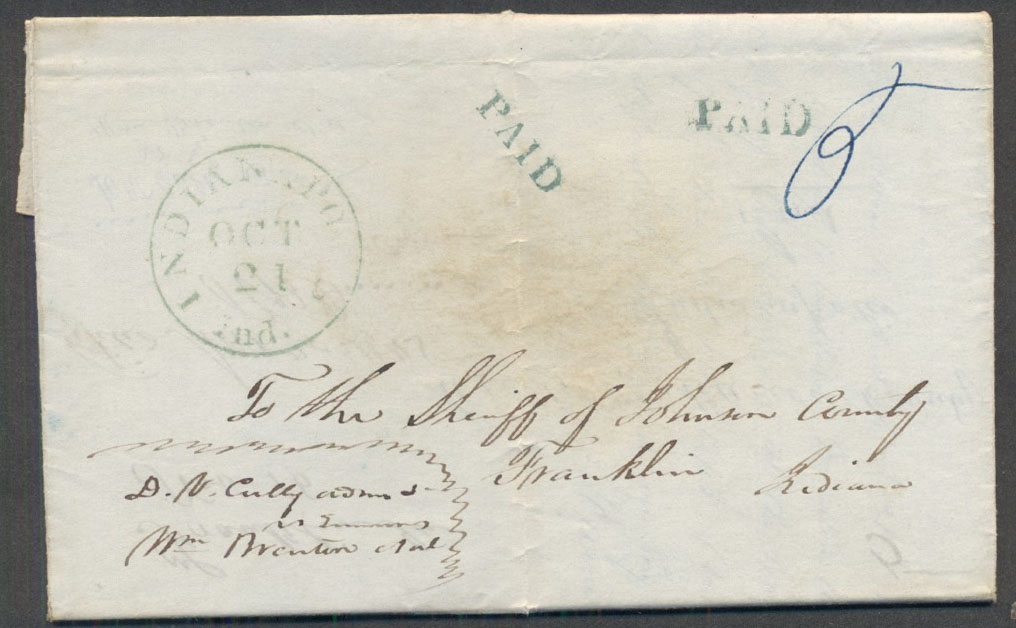 PAID
PAID
6
INDIANAPO
OCT
21
Ind.
To the Sheriff of Johnson County
Franklin Indiana
D. V. Cully adm
vs Summons
Wm Brenton et al